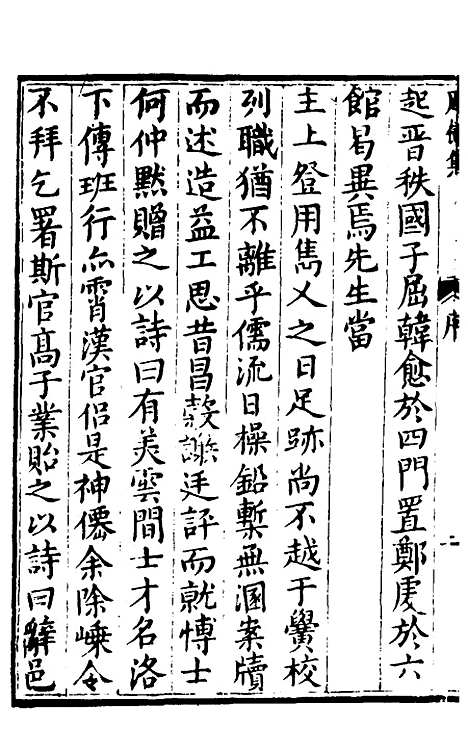 起晋秩國子屈韓愈於四門置鄭虔於六
館曷異焉先生當
主上登用雋乂之日足跡尚不越于黌校
列職猶不離乎儒流日操鉛槧無溷案牘
而述造益工思昔昌穀謝廷評而就愽士
何仲默贈之以詩曰有美雲間士才名洛
下傳班行亦霄漢官侣是神僊余除嵊令
不拜乞署斯官高子業貽之以詩曰辭邑